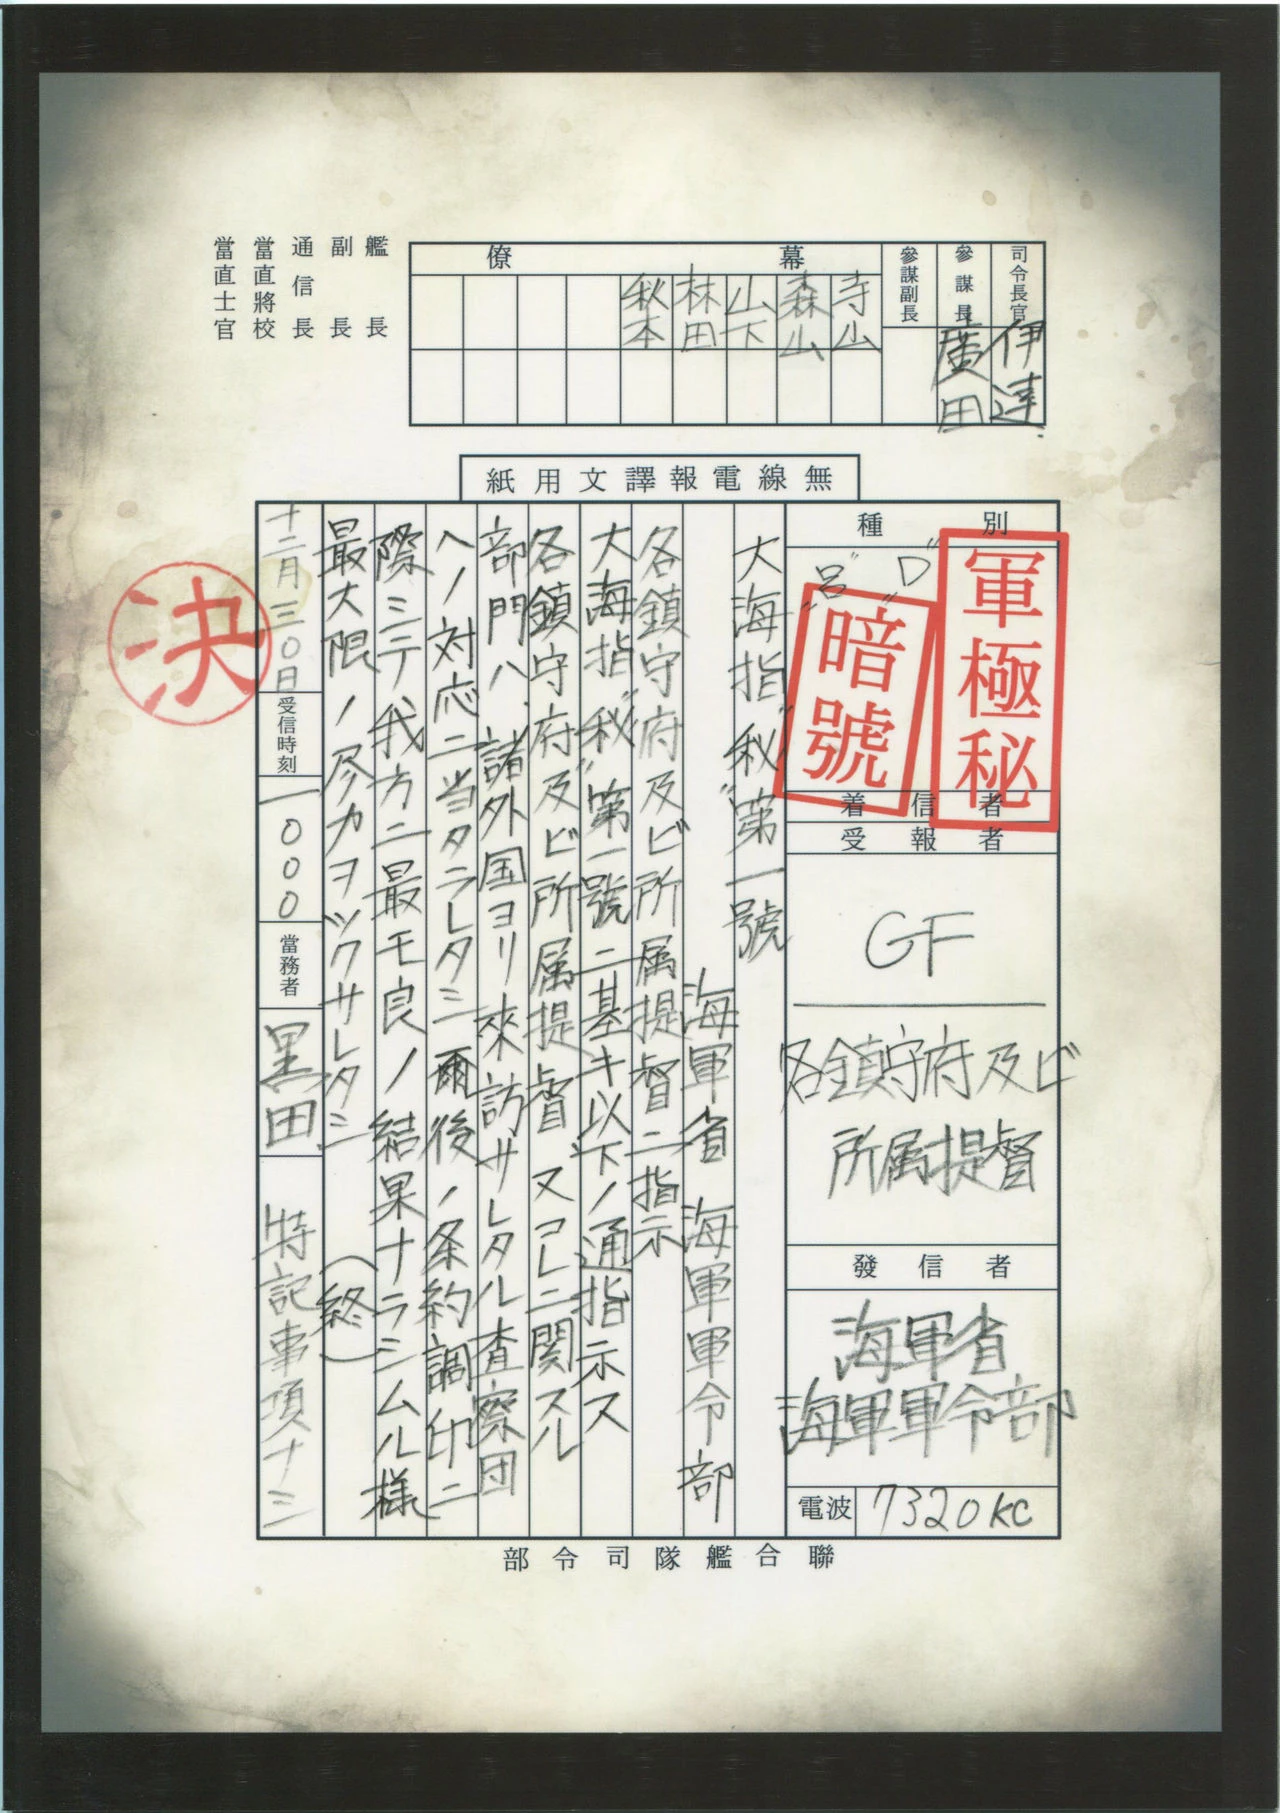 司令長官
伊達
參謀長
廣田
參謀副長
幕僚
寺山
森山
山下
林田
秋本
艦長
副長
通信長
當直將校
當直士官
無線電報譯文用紙
種別
軍極秘
"D"
"呂"
暗號
着信者
受報者
GF
各鎮守府及ビ
所属提督
發信者
海軍省
海軍軍令部
電波
7320KC
大海指"秘"第一號
海軍省 海軍軍令部
各鎮守府及ビ所属提督ニ指示
大海指"秘"第一號ニ基キ以下ノ通指示ス
各鎮守府及ビ所属提督 又コレニ関スル
部門ハ、諸外国ヨリ來訪サレタル査察団
ヘノ対応ニ当タラレタシ 爾後ノ条約調印ニ
際シテ我方ニ最モ良ノ結果ナラシムル様
最大限ノ尽力ヲツクサレタシ (終)
十二月三〇日
受信時刻
一000
當務者
黒田
特記事項ナシ
決
聯合艦隊司令部